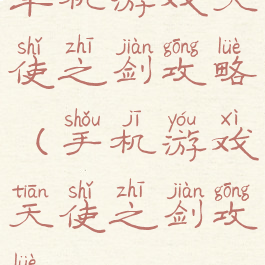 单机游戏天
shǐ zhī jiàn gōng lüè
使之剑攻略
shǒu jī yóu xì
（手机游戏
tiān shǐ zhī jiàn gōng
天使之剑攻
lüè